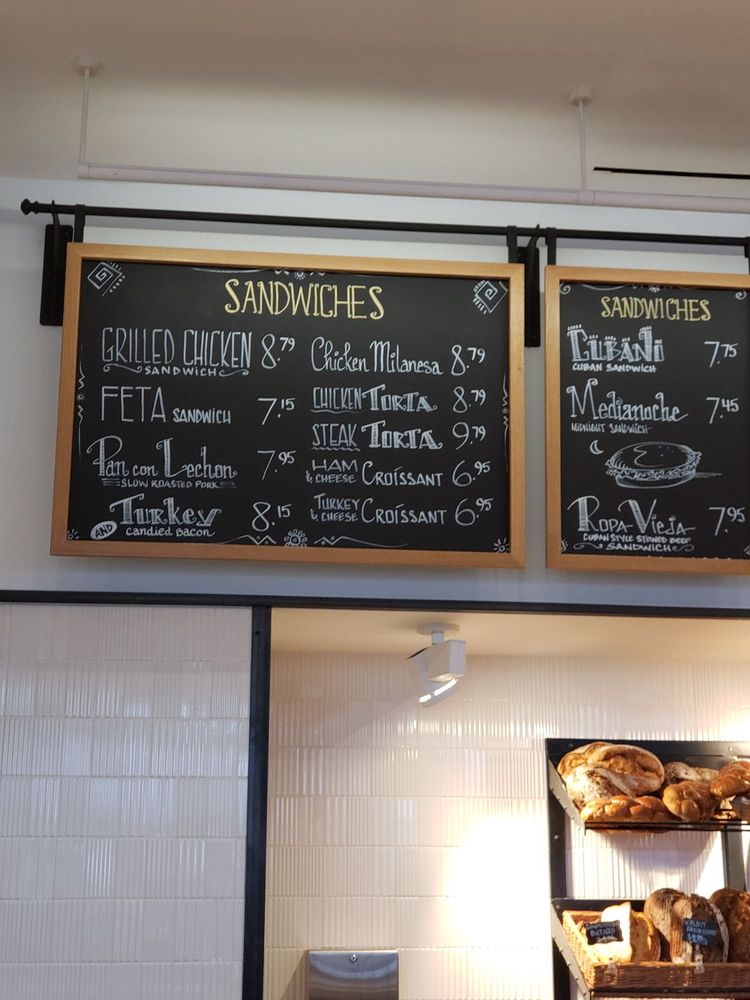 SANDWICHES
GRILLED CHICKEN 8.79
SANDWICH
FETA SANDWICH 7.15
Pan con Lechon 7.95
SLOW ROASTED PORK
Turkey 8.15
AND candied Bacon
Chicken Milanesa 8.79
CHICKEN TORTA 8.79
STEAK TORTA 9.79
HAM & CHEESE CROISSANT 6.95
TURKEY & CHEESE CROISSANT 6.95
SANDWICHES
CUBANI 7.75
CUBAN SANDWICH
Medianoche 7.45
MIDNIGHT SANDWICH
ROPA VIEJA 7.95
CUBAN STYLE STEWED BEEF
SANDWICH
BATARD
WALNUT